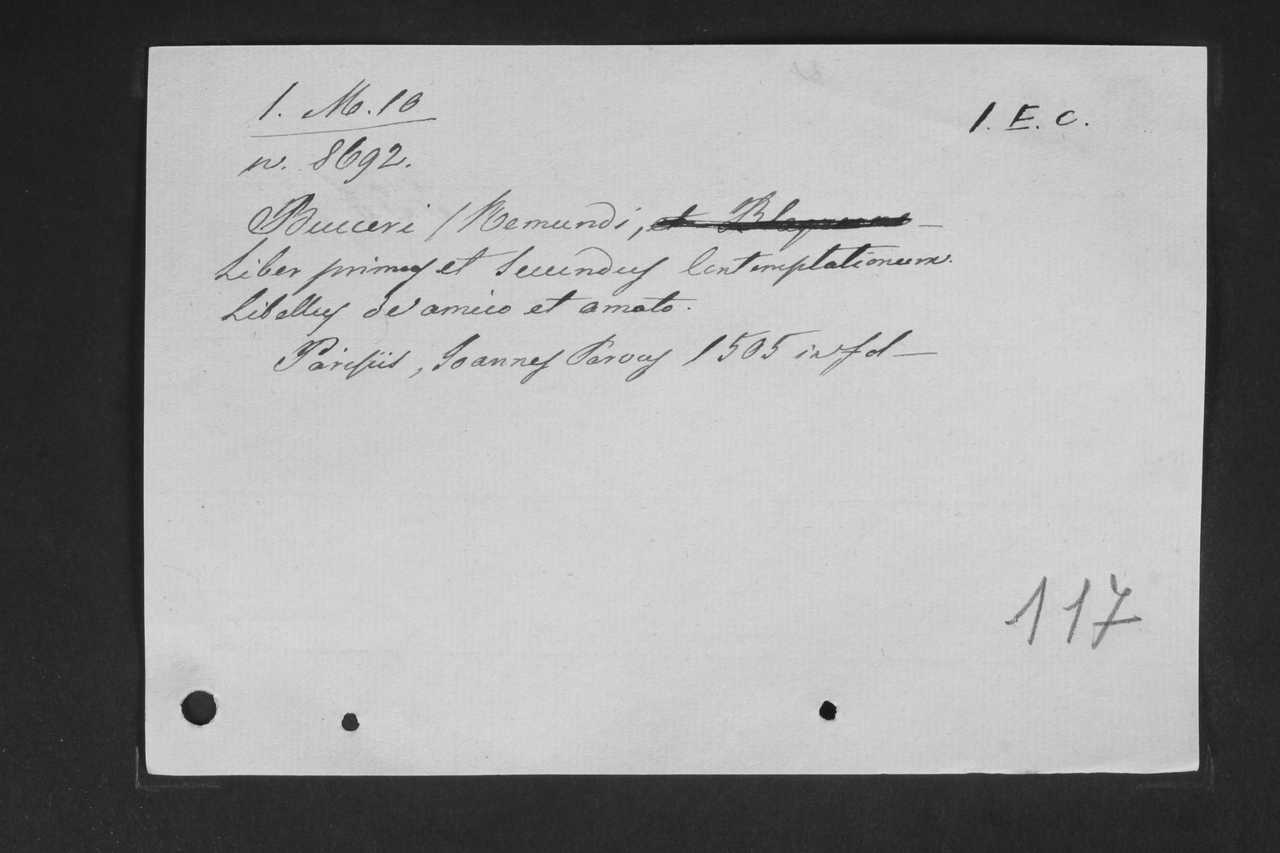 1. M. 10
I. E. C.
n. 8692.
Bucceri /Remundi, et Blaquerne —
Liber primus et secundus Contemplationum.
Libellus de amico et amato.
Parisiis, Joannes Parvus 1505 in fol—
117